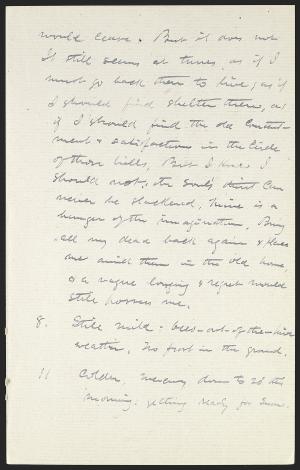 would leave. But it does not
It still seems at times, as if I
must go back there to live; as if
I should find shelter there, as
if I should find the old content-
ment & satisfaction in the circle
of those hills, But I know I
should not; the soul's thirst can
never be slackened, mine is a
hunger of the imagination. Bring
all my dead back again & place
me amid them in the old home,
& a vague longing & regret would
still possess me.
8. Still mild - bees-out-of-the-hive
weather, No frost in the ground.
11 Colder, mercury down to 26 this
morning. getting ready for snow.